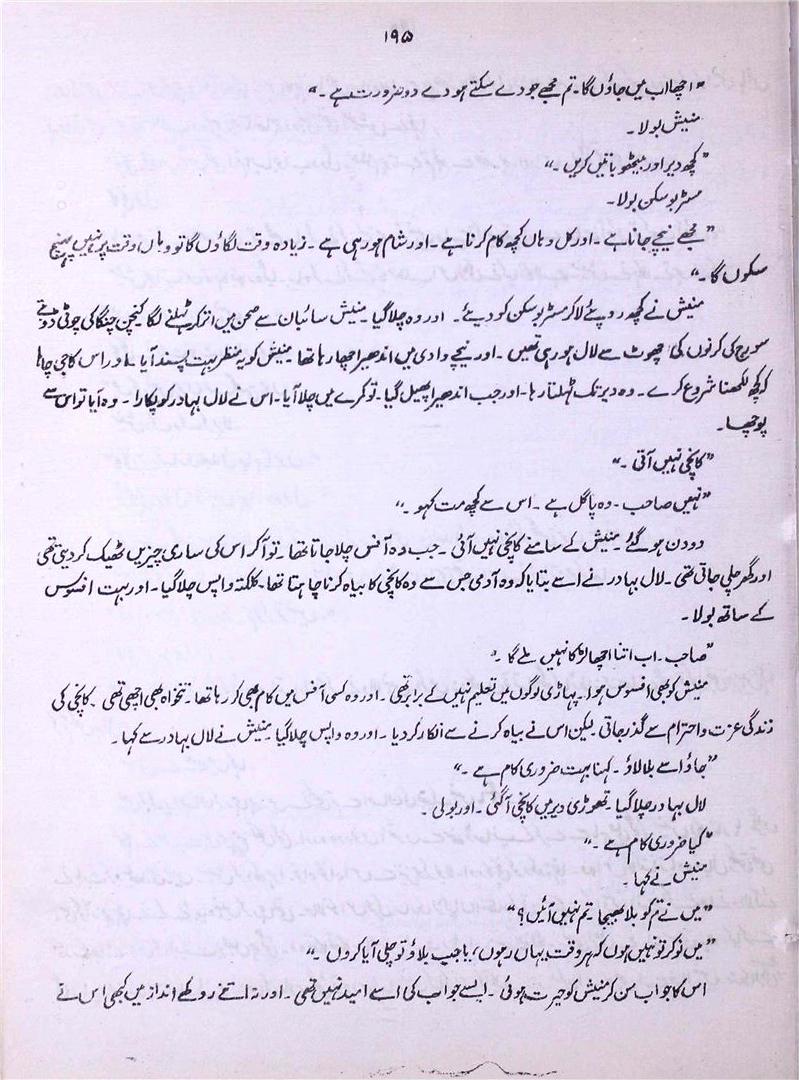 ۱۹۵
”اچھا اب میں جاؤں گا۔ تم مجھے جو دے سکتے ہو دے دو ضرورت ہے۔“
منیش بولا۔
”کچھ دیر اور بیٹھو باتیں کریں۔“
مسٹر بوسکن بولا۔
”مجھے نیچے جانا ہے۔ اور کل وہاں کچھ کام کرنا ہے۔ اور شام ہو رہی ہے۔ زیادہ وقت لگاؤں گا تو وہاں وقت پر نہیں پہنچ
سکوں گا۔“
منیش نے کچھ روپئے لا کر مسٹر بوسکن کو دیئے۔ اور وہ چلا گیا۔ منیش سائبان سے صحن میں اتر کر ٹہلنے لگا کنچن چنگا کی چوٹی ڈوبتے
سورج کی کرنوں کی چھوٹ سے لال ہو رہی تھیں۔ اور نیچے وادی میں اندھیرا چھا رہا تھا منیش کو یہ منظر بہت پسند آیا۔ اور اس کا جی چاہا
کہ کچھ لکھنا شروع کرے۔ وہ دیر تک ٹہلتا رہا۔ اور جب اندھیرا پھیل گیا۔ تو کمرے میں چلا آیا۔ اس نے لال بہادر کو پکارا۔ وہ آیا تو اس سے
پوچھا۔
”کانچی نہیں آتی۔“
”نہیں صاحب۔ وہ پاگل ہے۔ اس سے کچھ مت کہو۔“
دو دن ہو گئے۔ منیش کے سامنے کانچی نہیں آئی۔ جب وہ آفس چلا جاتا تھا۔ تو آ کر اس کی ساری چیزیں ٹھیک کر دیتی تھی
اور گھر چلی جاتی تھی۔ لال بہادر نے اسے بتایا کہ وہ آدمی جس سے وہ کانچی کا بیاہ کرنا چاہتا تھا۔ کلکتہ واپس چلا گیا۔ اور بہت افسوس
کے ساتھ بولا۔
”صاحب۔ اب اتنا اچھا لڑکا نہیں ملے گا۔“
منیش کو بھی افسوس ہوا۔ پہاڑی لوگوں میں تعلیم نہیں کے برابر تھی۔ اور وہ کسی آفس میں کام بھی کر رہا تھا۔ تنخواہ بھی اچھی تھی۔ کانچی کی
زندگی عزت و احترام سے گذر جاتی۔ لیکن اس نے بیاہ کرنے سے انکار کر دیا۔ اور وہ واپس چلا گیا۔ منیش نے لال بہادر سے کہا۔
”جاؤ اسے بلا لاؤ۔ کہنا بہت ضروری کام ہے۔“
لال بہادر چلا گیا۔ تھوڑی دیر میں کانچی آ گئی۔ اور بولی۔
”کیا ضروری کام ہے۔“
منیش نے کہا۔
”میں نے تم کو بلا بھیجا۔ تم نہیں آئیں؟“
”میں نوکر تو نہیں ہوں کہ ہر وقت یہاں رہوں، یا جب بلاؤ تو چلی آیا کروں۔“
اس کا جواب سن کر منیش کو حیرت ہوئی۔ ایسے جواب کی اسے امید نہیں تھی۔ اور نہ اتنے روکھے انداز میں کبھی اس نے